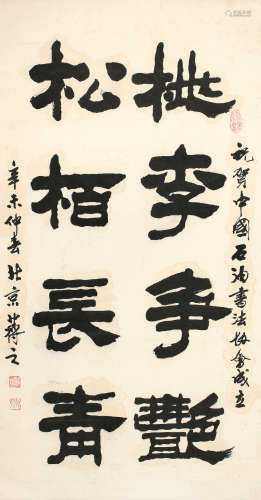 祝贺中國石油書法协會成立
桃李争艷
松栢長青
辛未仲春北京